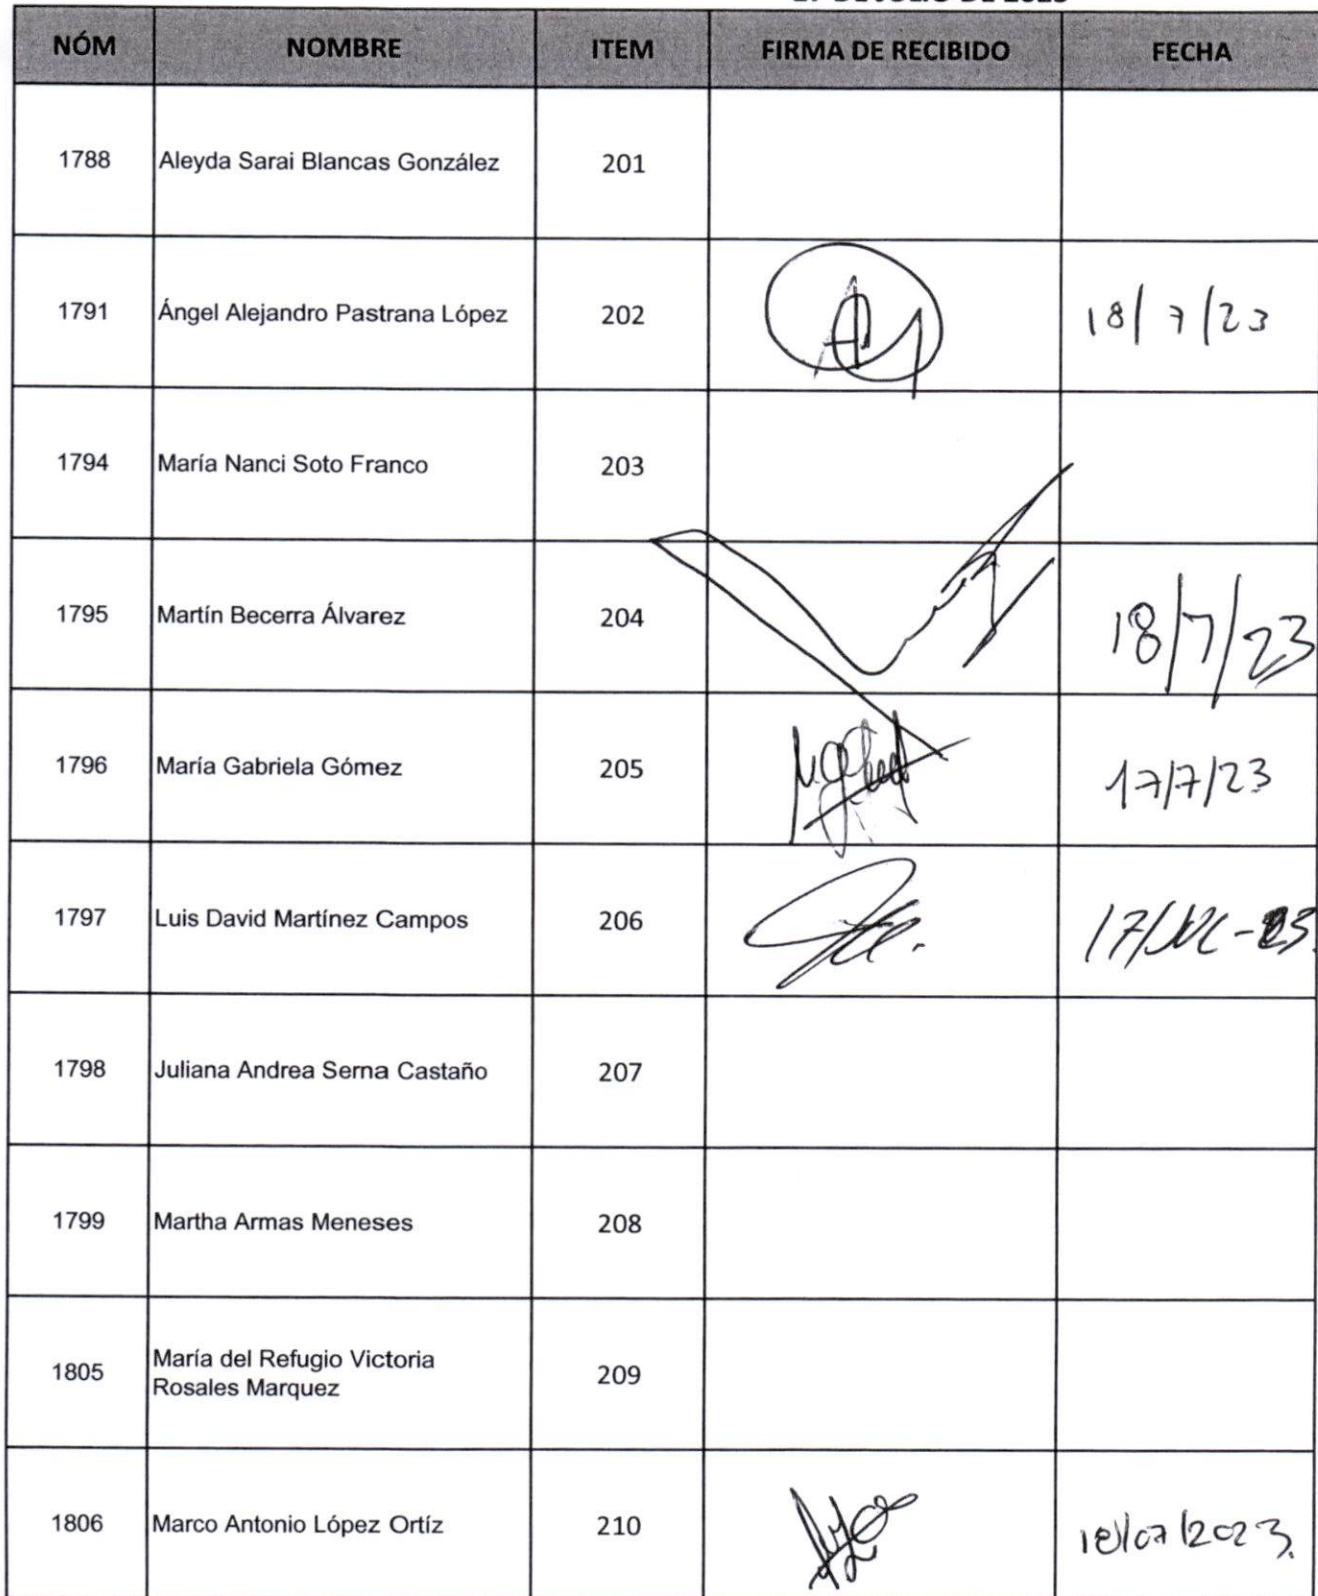 NÓM NOMBRE ITEM FIRMA DE RECIBIDO FECHA
1788 Aleyda Sarai Blancas González 201
1791 Ángel Alejandro Pastrana López 202 18/7/23
1794 María Nanci Soto Franco 203
1795 Martín Becerra Álvarez 204 18/7/23
1796 María Gabriela Gómez 205 17/7/23
1797 Luis David Martínez Campos 206
1798 Juliana Andrea Serna Castaño 207
1799 Martha Armas Meneses 208
1805 María del Refugio Victoria
Rosales Marquez 209
1806 Marco Antonio López Ortíz 210 18/07/2023.